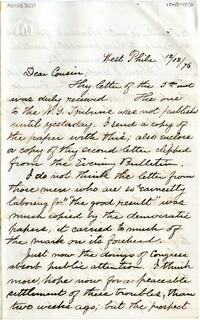 West Phila 12/13/76
Dear Cousin,
Thy letter of the 5th inst
was duly received. The one
to the N.Y. Tribune was not published
until yesterday. I send a copy of
the paper with this, also enclose
a copy of my second letter clipped
from the Evening Bulletin
I do not think the letter from
those mere who are so "earnestly
laboring for "the good result" was
much copied by the democratic
papers, it carried to much of
the mark on its forehead.
Just now the doings of Congress
absorb public attention. I think
more hope now for a peaceable
settlement of these troubles, than
two weeks ago; but the prospect